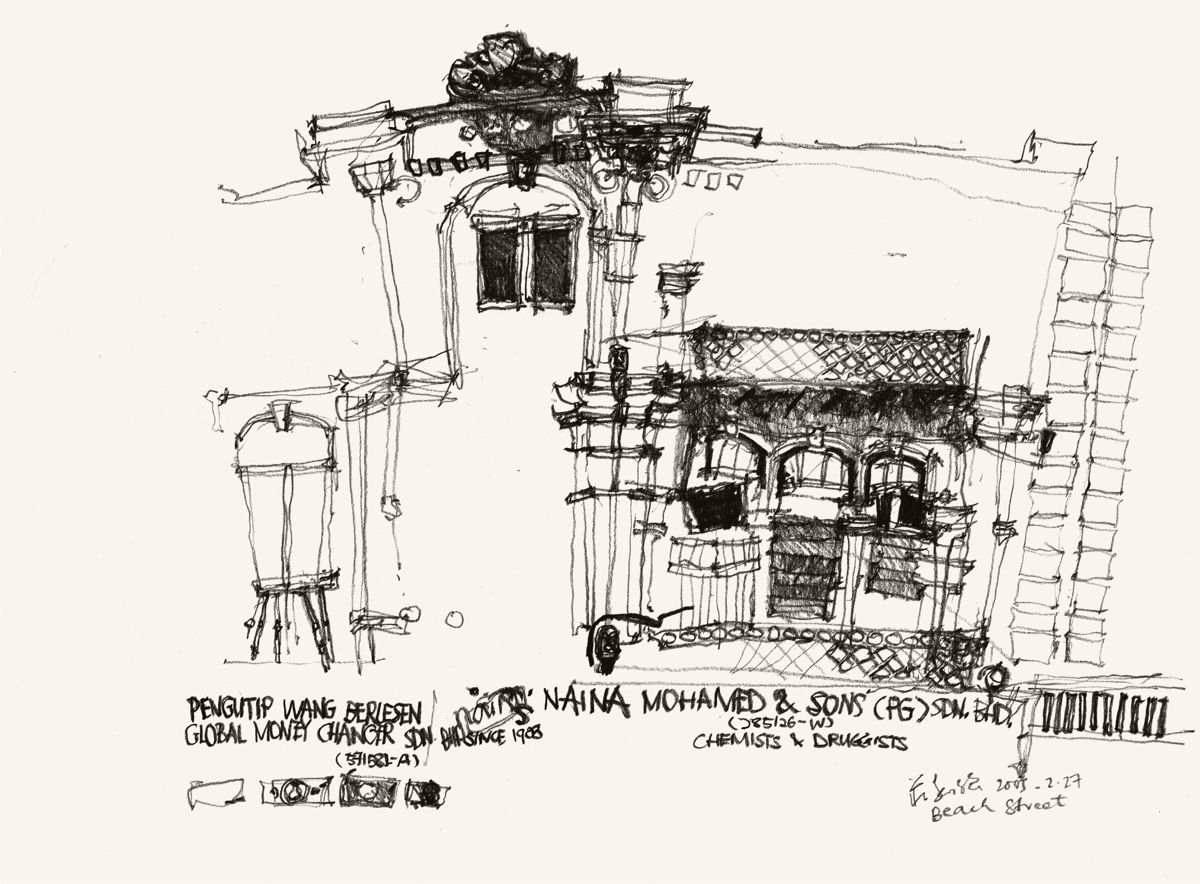 PENGUTIP WANG BERLESEN
GLOBAL MONEY CHANGER SDN. BHD.
(371581-A)
SINCE 1908
NAINA MOHAMED & SONS (PG) SDN. BHD.
(785126-W)
CHEMISTS & DRUGGISTS
2005.2.27
Beach Street